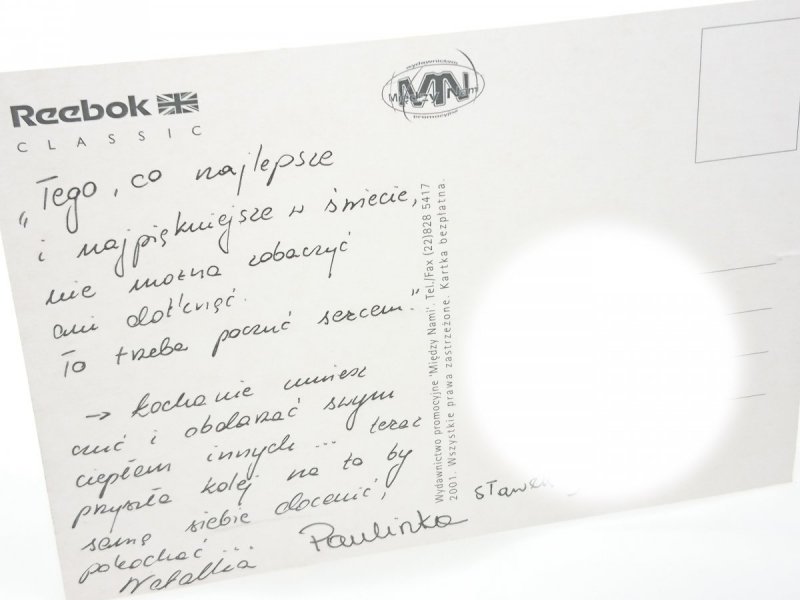 Reebok
CLASSIC
wydawnictwo
MN
Między Nami
promocyjne
"Tego, co najlepsze
i najpiękniejsze w świecie,
nie można zobaczyć
ani dotknąć.
To trzeba poczuć sercem."
→ Kochanie umiesz
czuć i obdarzać swym
ciepłem innych... teraz
przyszła kolej na to by
samą siebie docenić,
pokochać...
Natalka
Paulinka
Wydawnictwo promocyjne 'Między Nami'. Tel./Fax (22)828 5417
2001. Wszystkie prawa zastrzeżone. Kartka bezpłatna.